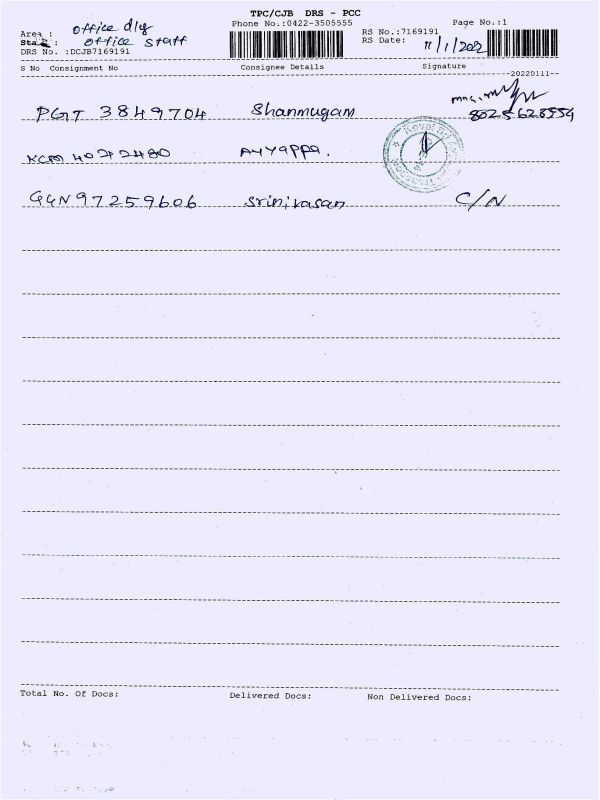 TPC/CJB DRS - PCC
Phone No.:0422-3505555
Page No.:1
Area : office dly
Staff : office staff
DRS No. :DCJB7169191
RS No.:7169191
RS Date: 11/1/2022
S No Consignment No Consignee Details Signature
--20220111--
PGT 3849704 Shanmugam
8025628554
Ayyappa.
GGN97259606 Srinivasan C/N
Total No. Of Docs: Delivered Docs: Non Delivered Docs: